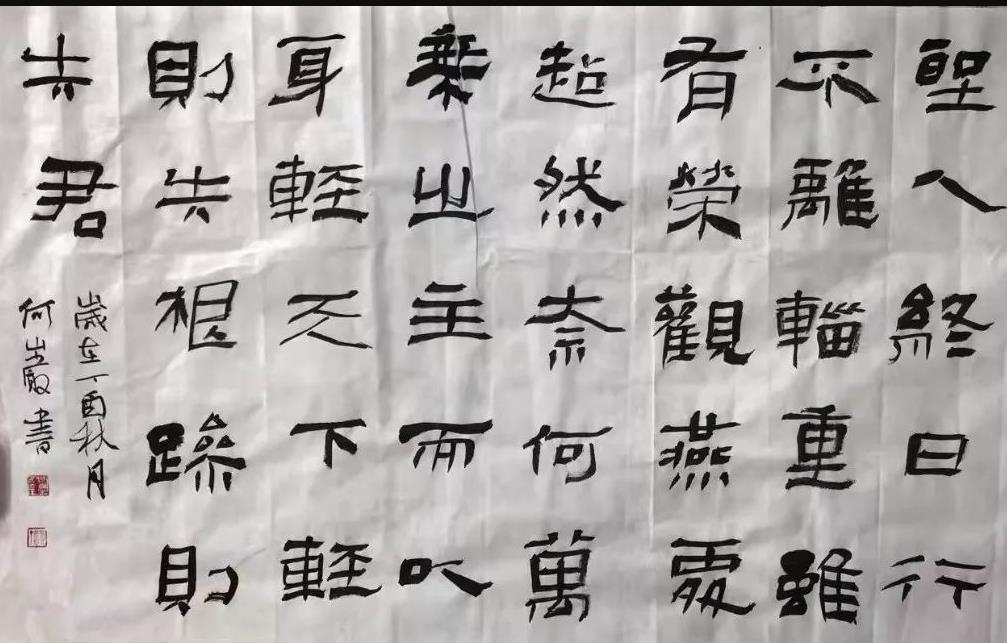 聖人終日行
不離輜重雖
有榮觀燕處
超然奈何萬
乘之主而以
身輕天下輕
則失根躁則
失君
歲在丁酉秋月
何書